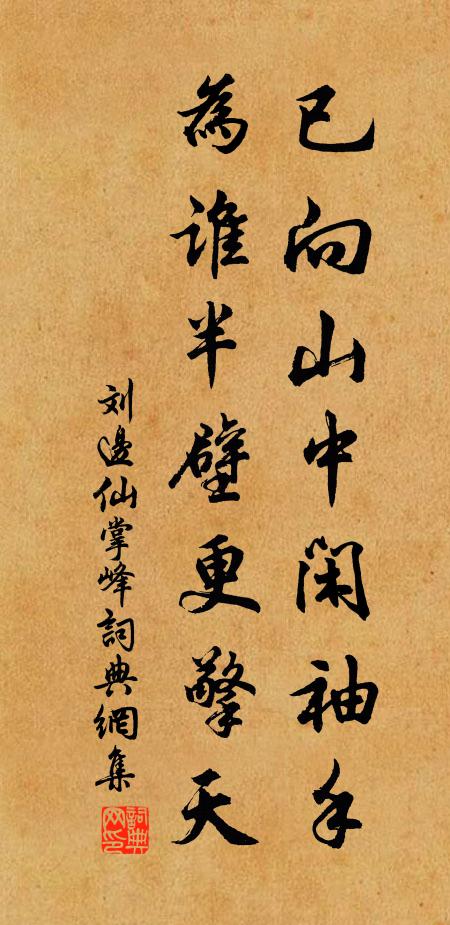 已向山中閑袖手
為誰半壁更擎天
刘邊仙掌峰詞典網集
詞典网印